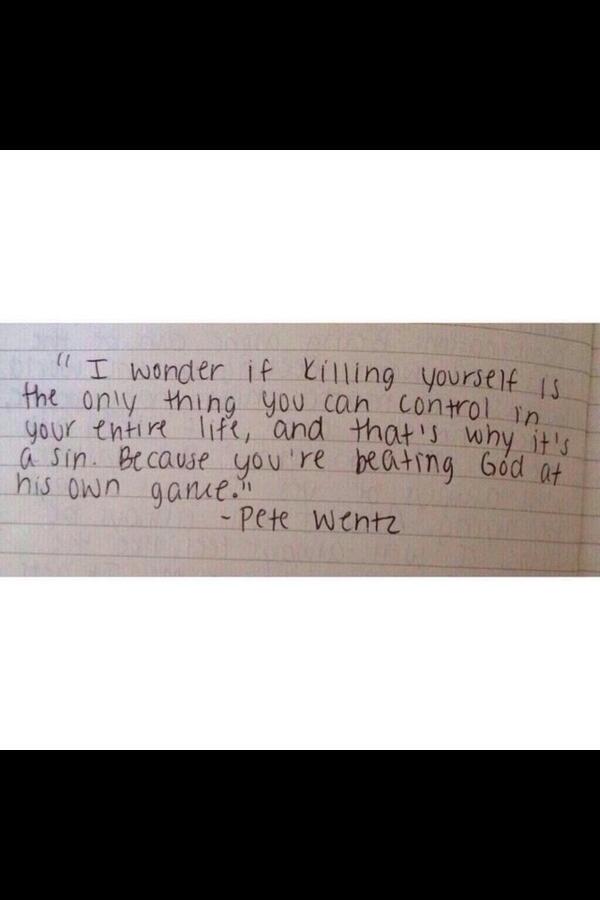 "I wonder if killing yourself is
the only thing you can control in
your entire life, and that's why it's
a sin. Because you're beating God at
his own game."
-Pete Wentz